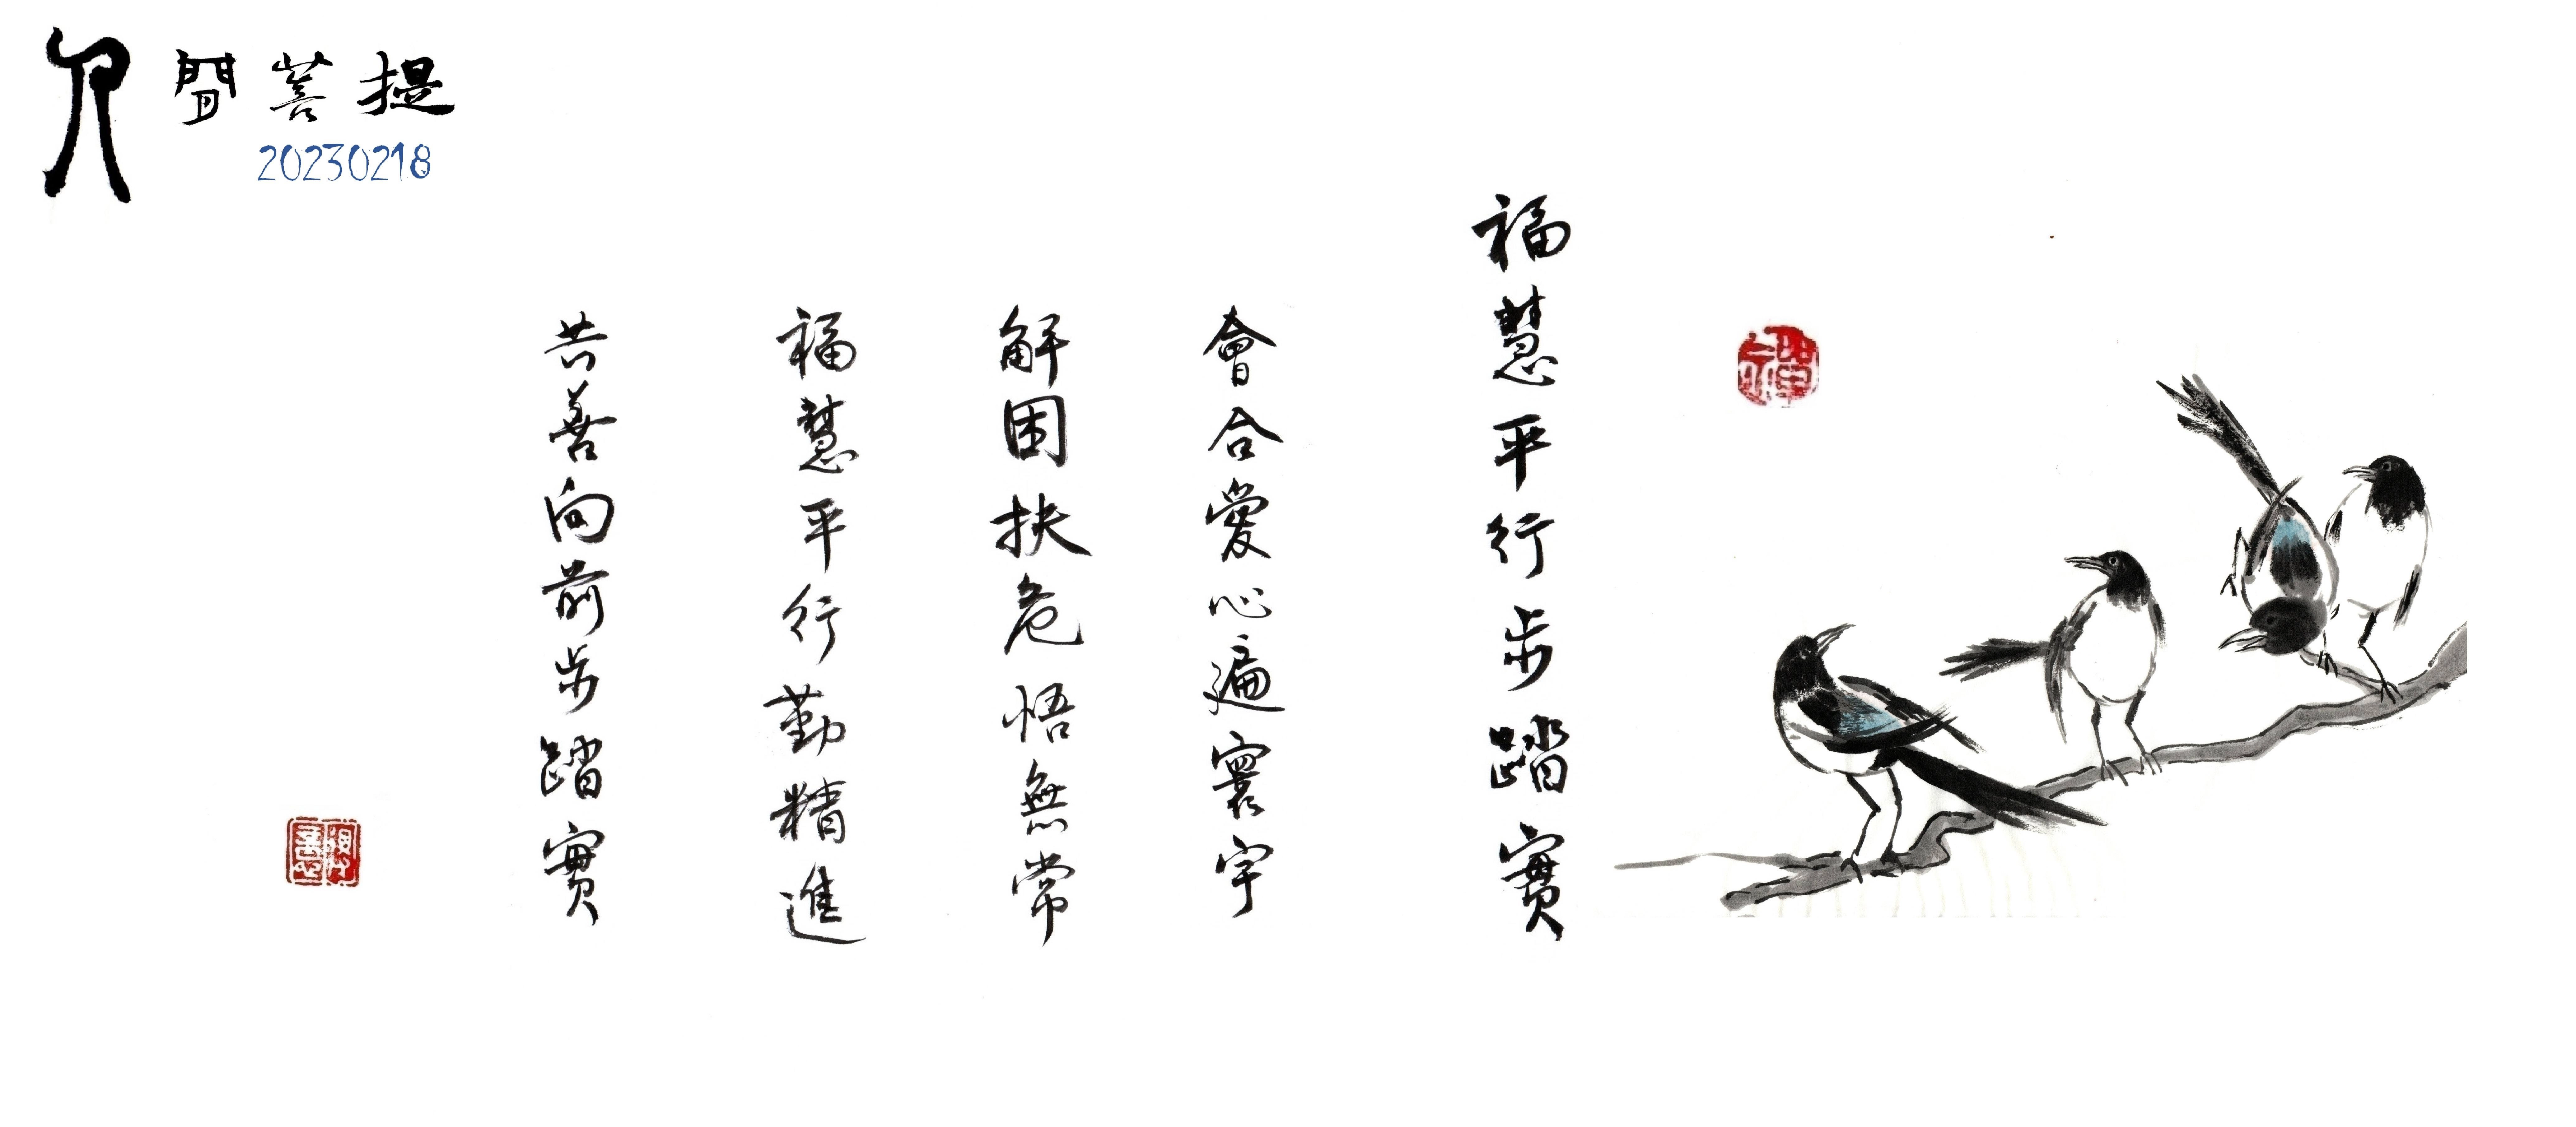 人間菩提
20230218
福慧平行步踏實
會合愛心遍寰宇
解困扶危悟無常
福慧平行勤精進
共善向前步踏實